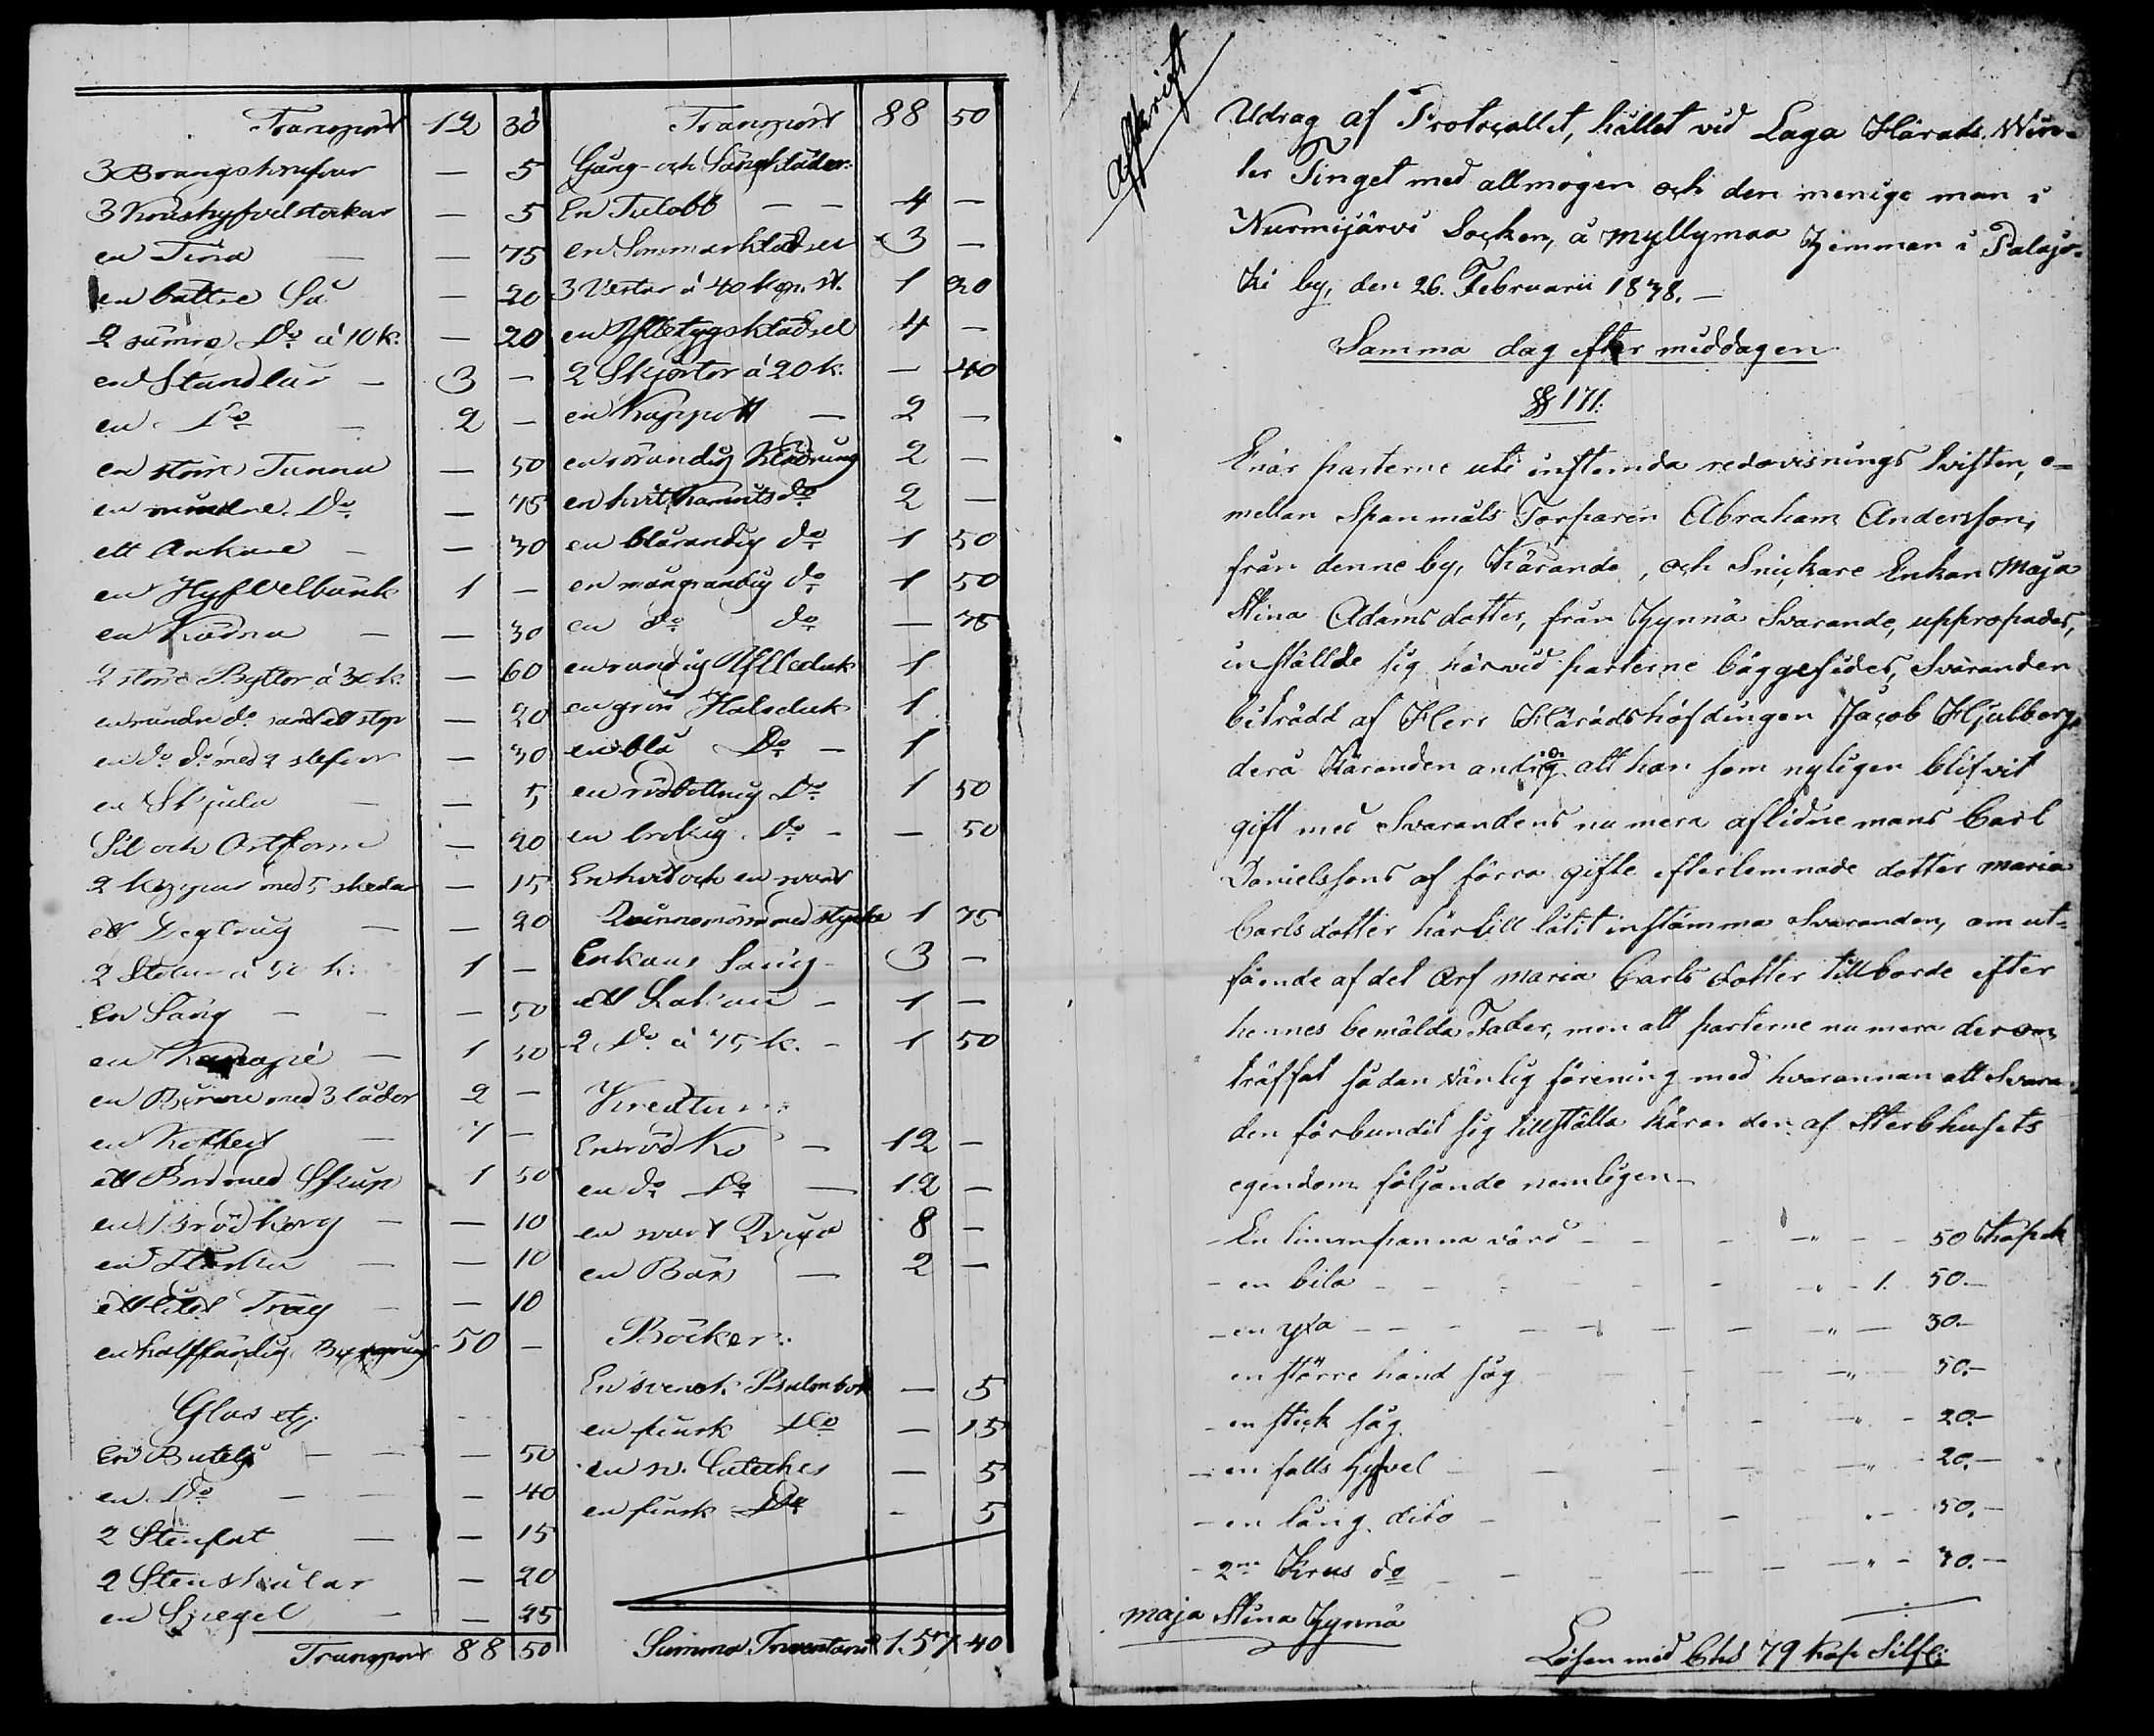 Transport 12 30
3 Brangskrufvar — 5
3 Krushyfvelstockar — 5
en Tina — 75
en battre Så — 20
2 sämre Do á 10 k. — 20
en Standlår — 3 —
en Do — 2 —
en större Tunna — 50
en mindre Do — 75
ett Ankare — 30
en Hyfvelbänk 1 —
en Kärna — 30
2 större Byttor á 30 k. — 60
en mindre do — 20
en do do med 2 stefvar — 30
en Skjula — 5
Sil och Ostform — 20
2 med 5 skedar — 15
ett Degtrug — 20
2 Stolar á 50 k: 1 —
En Säng — 50
en Kanapé — 1 50
en med 3 lådor 2 —
en — 1 —
ett Bord med Skåp 1 50
en Brödkorg — 10
en — 10
ett litet Tråg — 10
en halffärdig 50 —
Glas etc:
En Butelj — 50
en Do — 40
2 Stenfat — 15
2 Stenskålar — 20
en Spegel — 25
Transport 88 50
Transport 88 50
Gång- och Sängkläder:
En Tulobb — 4 —
en Sommarklädsel 3 —
3 Vestar á 40 kop. st. 1 20
en Ylletygsklädsel 4 —
2 Skjortor á 20 k. — 40
en Kappott — 2 —
en rörandig Klädning 2 —
en hvit do 2 —
en blårandig do 1 50
en mångrandig do 1 50
en do do — 75
en randig Ylleduk 1
en grön Halsduk 1
en blå Do — 1
en rödbottnig Do 1 50
en brokig Do — 50
En hvit och en svart
Qvinnomössa med stycke 1 75
Enkans Säng 3 —
ett Lakan — 1 —
2 Do á 75 k. — 1 50
Kreatur:
En röd Ko — 12 —
en do Do — 12 —
en svart Qviga 8 —
en — 2 —
Böcker:
En svensk Psalmbok — 5
en finsk Do — 15
en sv. Cateches — 5
en finsk Do — 5
Summa Inventarii 157 40
Afskrift
Udrag af Protocollet, hållet vid Laga Härads Win-
ter Tinget med allmogen och den menige man i
Nurmijärvi Socken, å Myllymaa Hemman i Palajo-
ki by, den 26. Februarii 1838. —
Samma dag efter middagen
§ 171:
Enär parterne uti instemda redovisnings tvisten, e-
mellan Spanmåls Torparen Abraham Andersson,
från denne by, Kärande, och Snickare Enkan Maja
Stina Adamsdotter, från Hynnä Svarande, uppropades,
inställde sig härvid parterne bäggesides, Svaranden
biträdd af Herr Häradshöfdingen Jacob Hjulberg,
derå Käranden androg att han som nyligen blifvit
gift med Svarandens nu mera aflidne mans Carl
Danielssons af förra gifte efterlemnade dotter Maria
Carlsdotter härtill låtit instämma Svaranden, om ut-
fående af det Arf Maria Carlsdotter tillborde efter
hennes bemälda Fader, men att parterne nu mera derom
träffat sådan vänlig förening med hvarannan att Svaran-
den förbundit sig tillställa Käranden af Sterbhusets
egendom följande nemligen —
— En limmpanna värd — „ — 50 Kopek
— en bila — „ — 1. 50. —
— en yxa — „ — 30. —
en större hand såg — „ — 50. —
— en stick såg — „ — 20. —
— en falls hyfvel — „ — 20. —
— en lång dito — „ — 50. —
— 2ne Krus do — „ — 70. —
Maja Stina Hynnä
Lösen med Chs 79 Kop Silf: